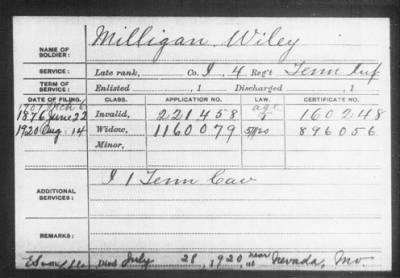 NAME OF SOLDIER: Milligan, Wiley
SERVICE: Late rank, Co. I, 4 Reg't Tenn Inf
TERM OF SERVICE: Enlisted , 1 Discharged , 1
DATE OF FILING. CLASS. APPLICATION NO. LAW. CERTIFICATE NO.
1907 Mch 6 age
1876 June 22 Invalid, 221458 160248
1920 Aug. 14 Widow, 1160079 896056
Minor,
ADDITIONAL SERVICES: I 1 Tenn Cav
REMARKS:
Died July 28, 1920, near Nevada, Mo.